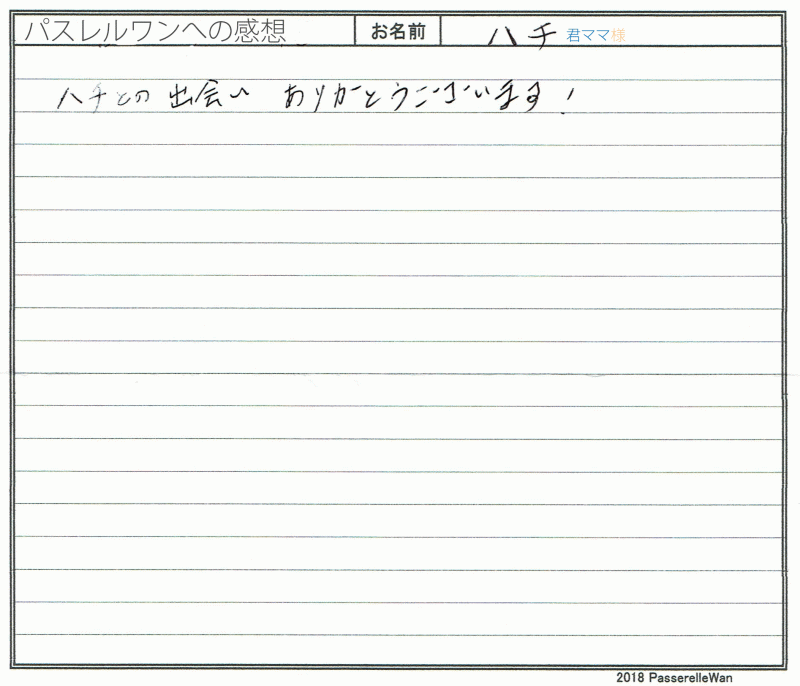 パスレルワンへの感想 お名前 ハチ 君ママ様
ハチとの出会い ありがとうございます!
2018 PasserelleWan